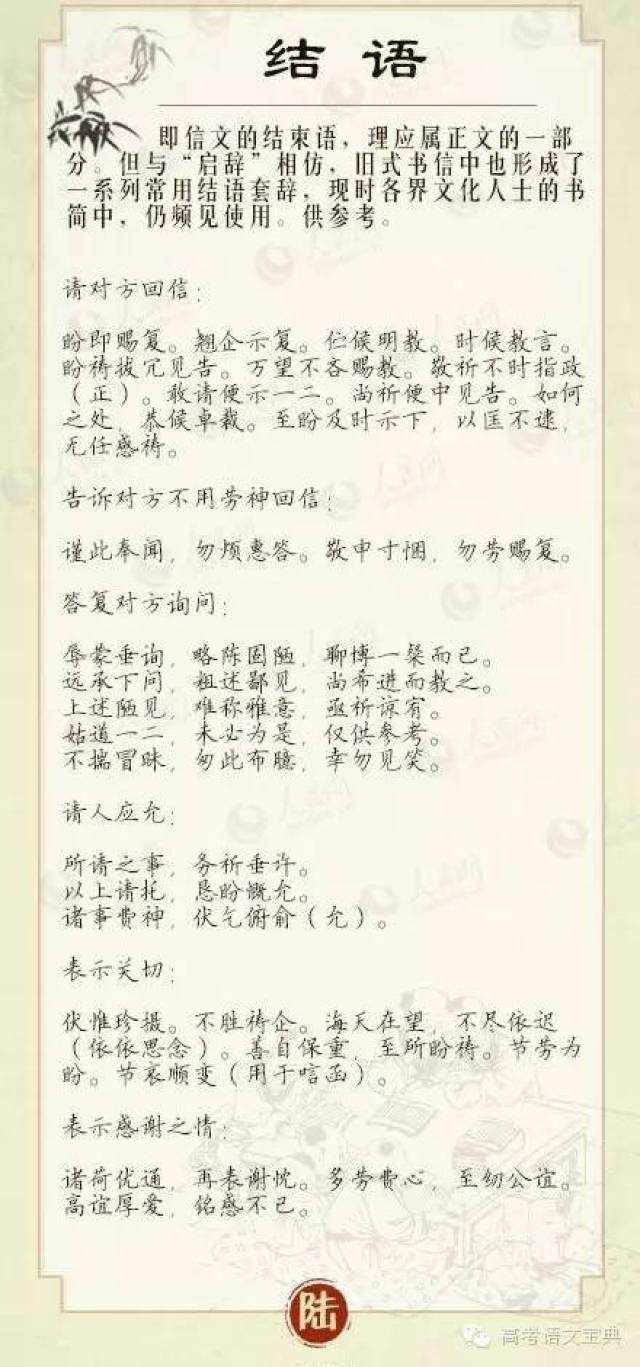 结语
即信文的结束语，理应属正文的一部
分。但与“启辞”相仿，旧式书信中也形成了
一系列常用结语套辞，现时各界文化人士的书
简中，仍频见使用。供参考。
请对方回信：
盼即赐复。翘企示复。伫候明教。时候教言。
盼祷拔冗见告。万望不吝赐教。敬祈不时指政
（正）。敢请便示一二。尚祈便中见告。如何
之处，恭候卓裁。至盼及时示下，以匡不逮，
无任感祷。
告诉对方不用劳神回信：
谨此奉闻，勿烦惠答。敬申寸悃，勿劳赐复。
答复对方询问：
辱蒙垂询，略陈固陋，聊博一粲而已。
远承下问，粗述鄙见，尚希进而教之。
上述陋见，难称雅意，亟祈谅宥。
姑道一二，未必为是，仅供参考。
不揣冒昧，匆此布臆，幸勿见笑。
请人应允：
所请之事，务祈垂许。
以上请托，恳盼慨允。
诸事费神，伏乞俯俞（允）。
表示关切：
伏惟珍摄。不胜祷企。海天在望，不尽依迟
（依依思念）。善自保重，至所盼祷。节劳为
盼。节哀顺变（用于唁函）。
表示感谢之情：
诸荷优通，再表谢忱。多劳费心，至纫公谊。
高谊厚爱，铭感不已。
陆
高考语文宝典